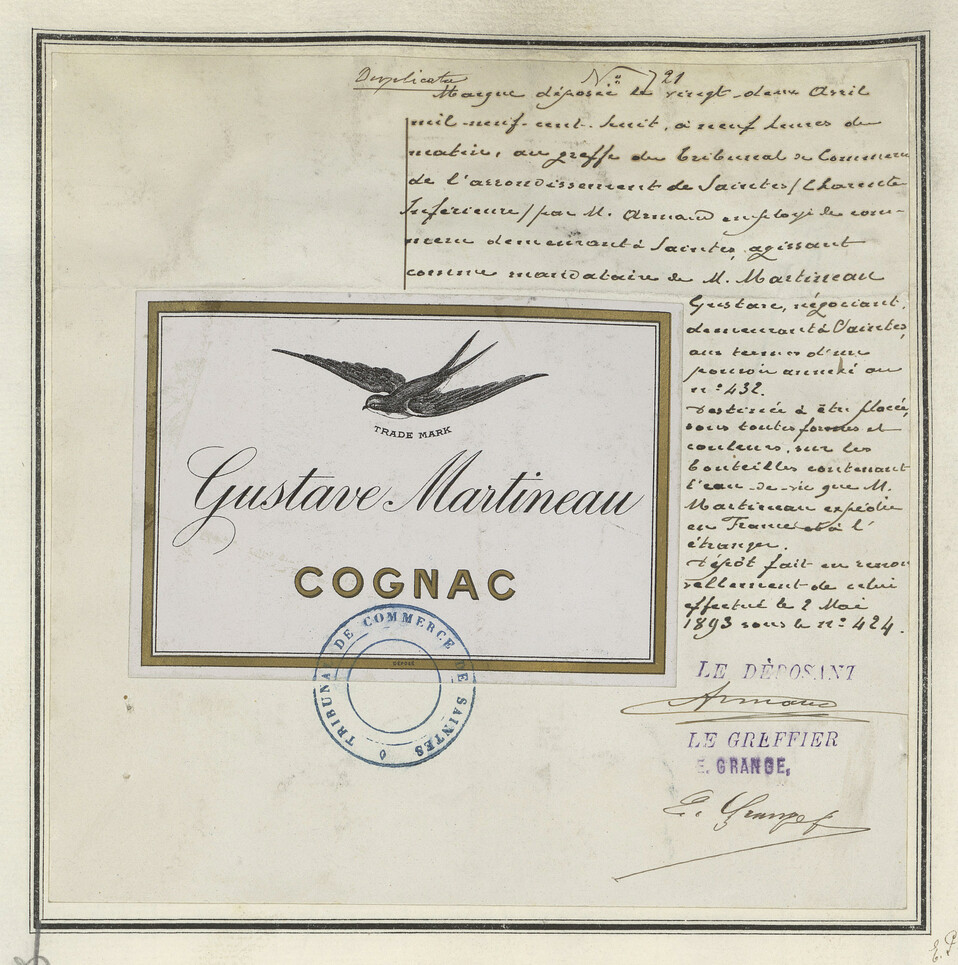 Duplicata
N° 721
Marque déposée le vingt-deux Avril
mil-neuf-cent-huit, à neuf heures du
matin, au greffe du Tribunal de Commerce
de l'arrondissement de Saintes (Charente
Inférieure) par M. Armand employé de com-
merce demeurant à Saintes, agissant
comme mandataire de M. Martineau
Gustave, négociant,
demeurant à Saintes,
aux termes d'un
pouvoir annexé au
n° 432.
Destinée à être placée,
sous toutes formes et
couleurs, sur les
bouteilles contenant
l'eau-de-vie que M.
Martineau expédie
en France et à l'
étranger.
Dépôt fait en renou
vellement de celui
effectué le 2 Mai
1893 sous le n° 424.
TRADE MARK
Gustave Martineau
COGNAC
DÉPOSÉ
TRIBUNAL DE COMMERCE DE SAINTES
LE DÉPOSANT
Armand
LE GREFFIER
E. GRANGE,
E. Grange
E. P